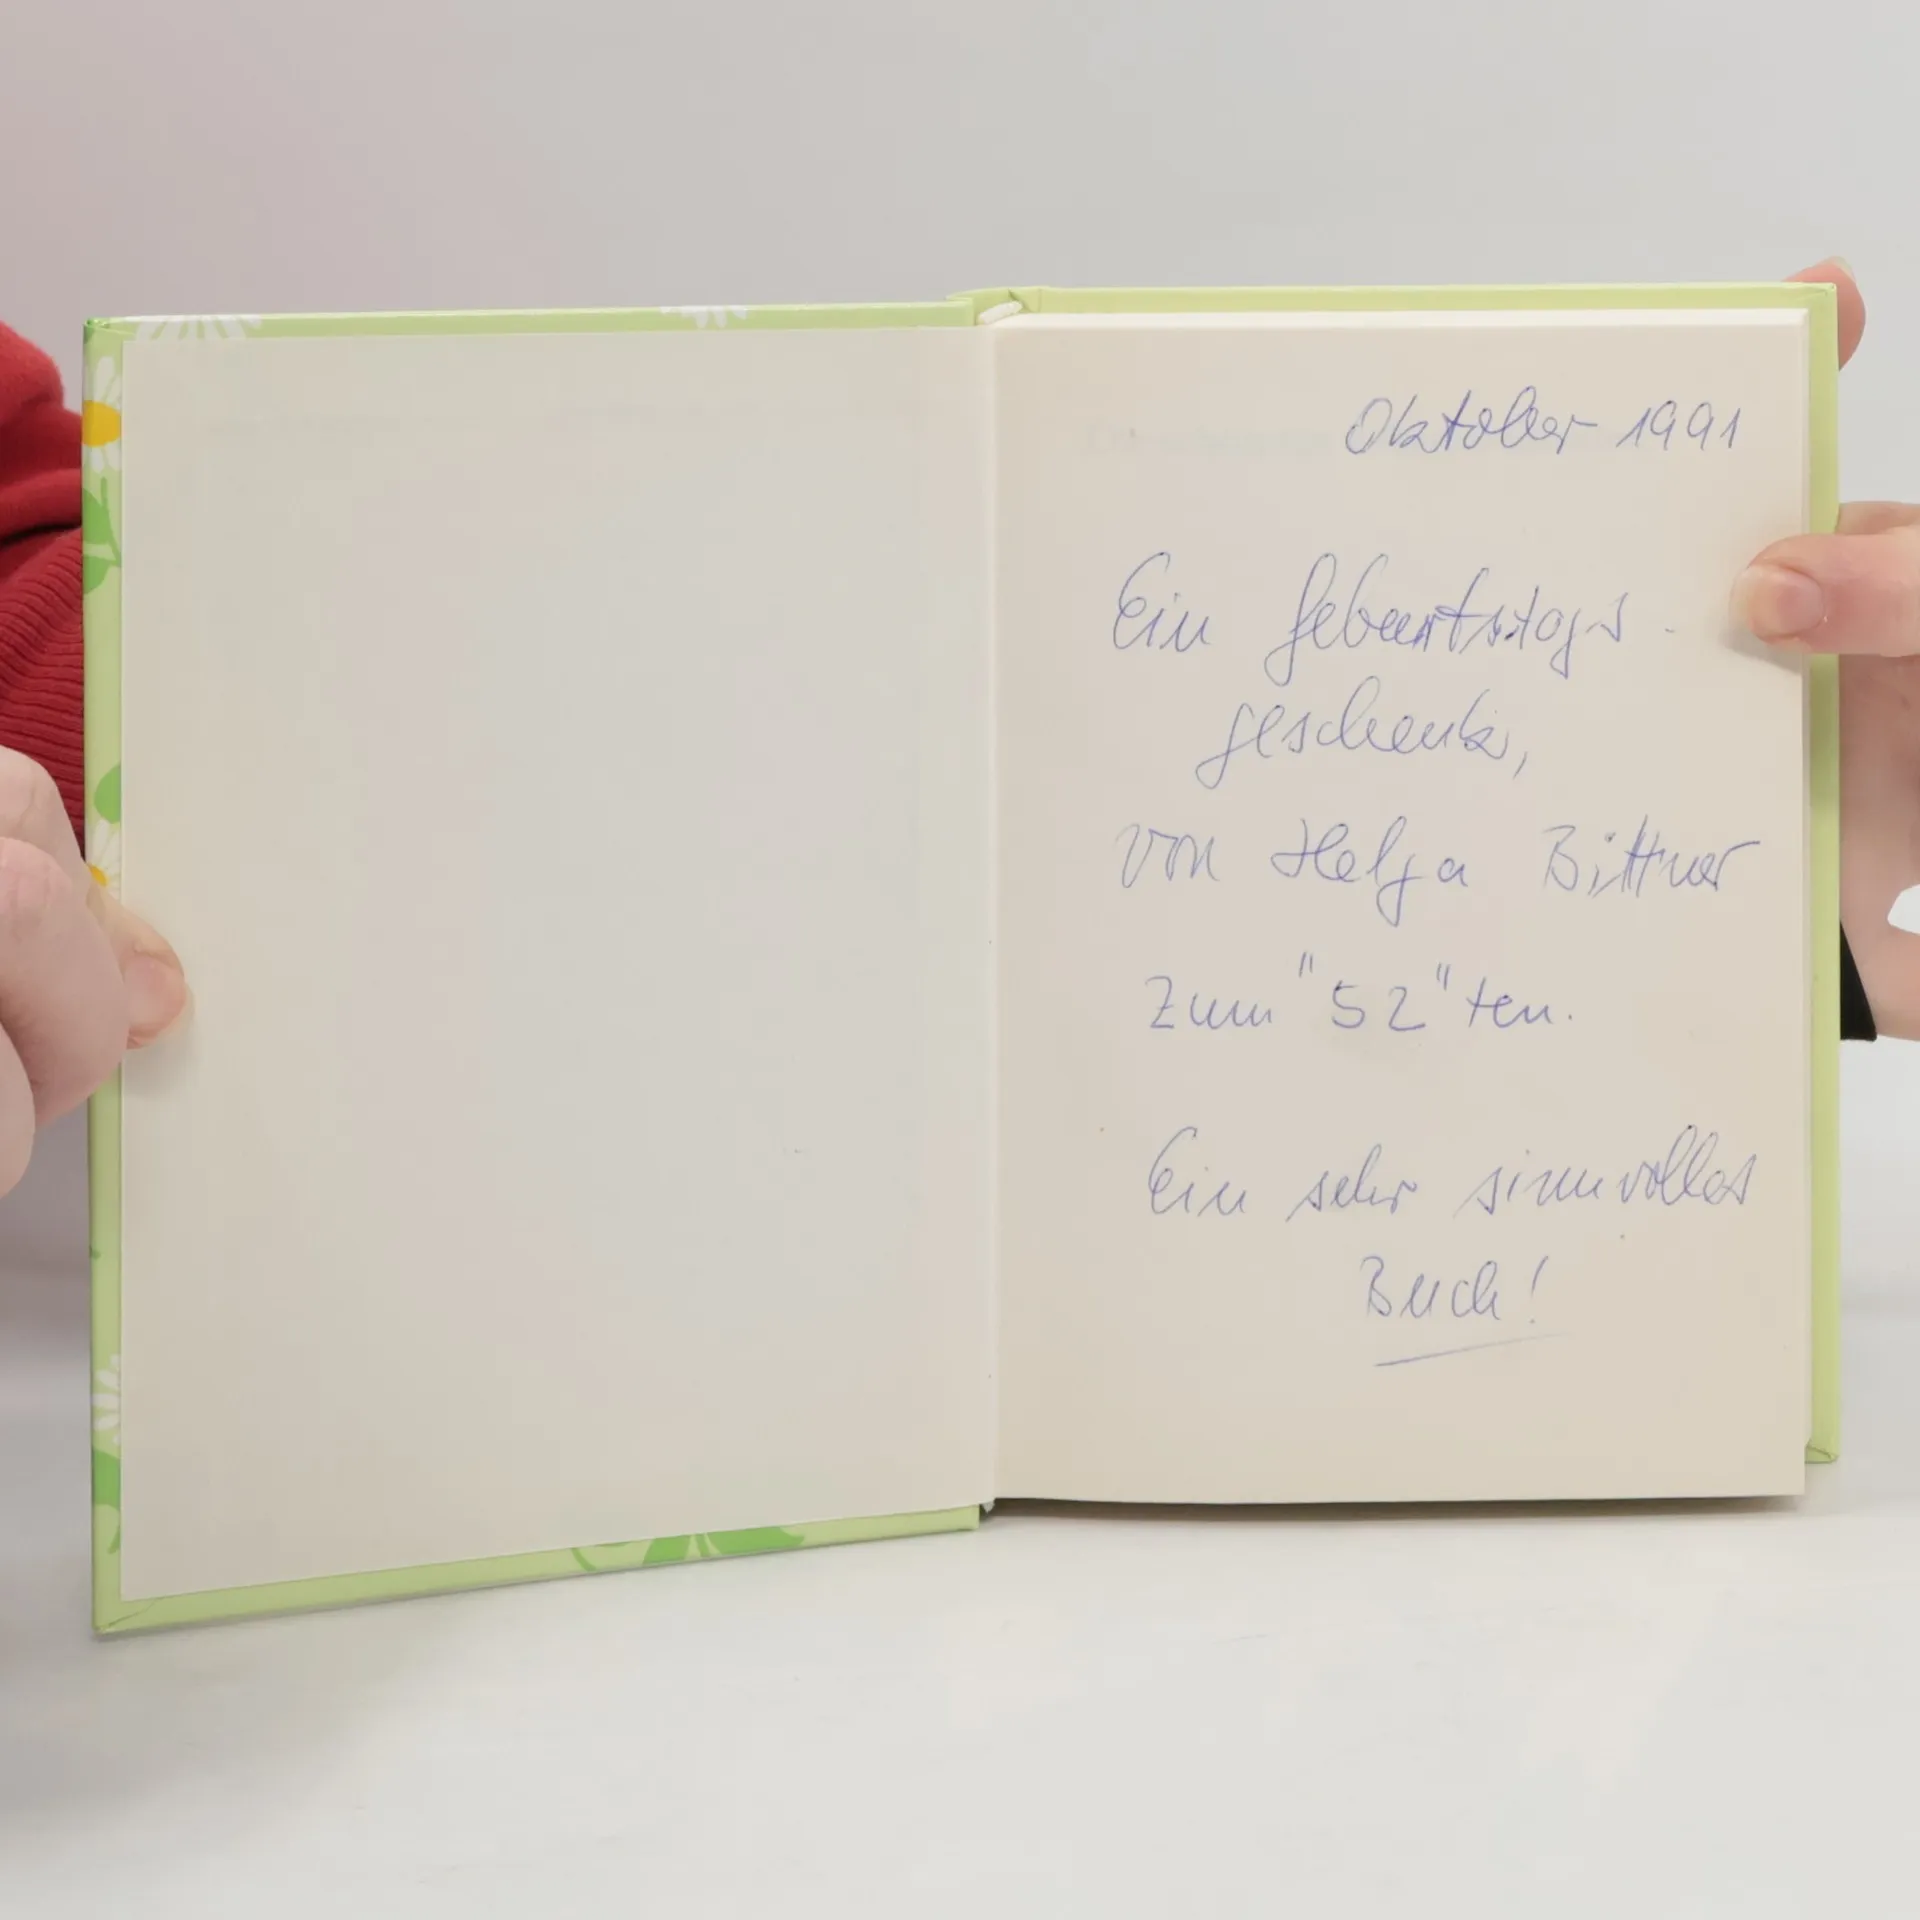 Oktober 1991
Ein Geburtstags-
geschenk,
von Helga Bittner
Zum "52"ten.
Ein sehr sinnvolles
Buch!